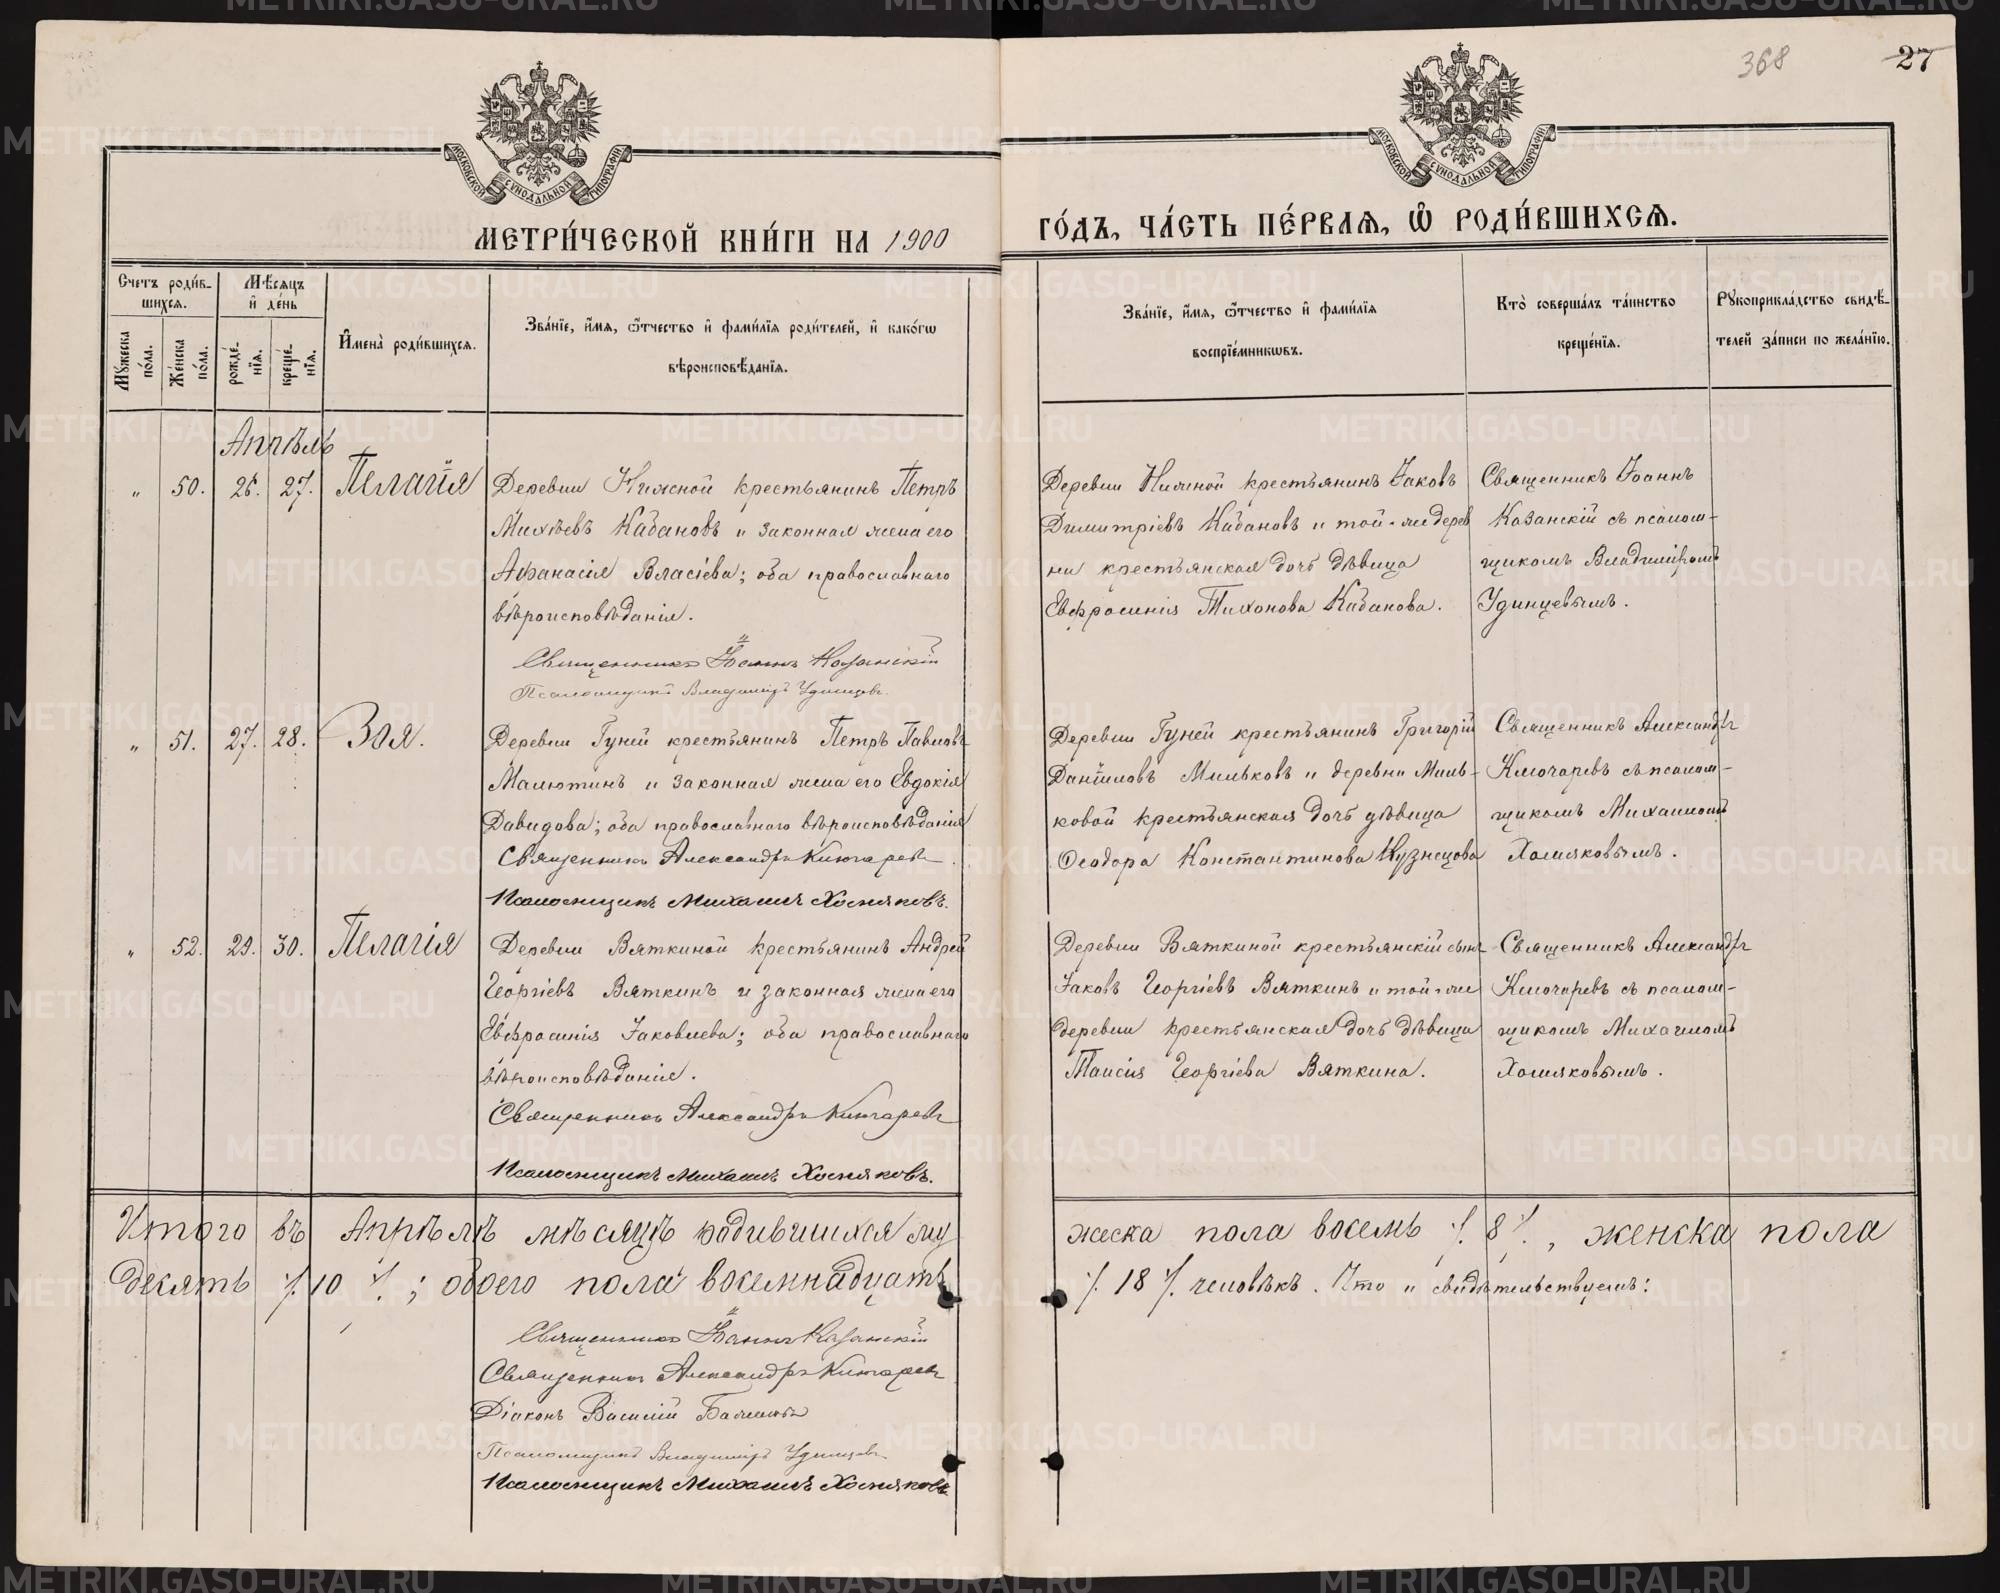 368
27
МОСКОВСКОЙ СѴНОДАЛЬНОЙ ТИПОГРАФІИ
МОСКОВСКОЙ СѴНОДАЛЬНОЙ ТИПОГРАФІИ
МЕТРИ́ЧЕСКОЙ КНИ́ГИ НА 1900
ГО́ДЪ, ЧА́СТЬ ПЕ́РВАѦ, Ѽ РОДИ́ВШИХСѦ.
Счетъ роди́в-
шихсѧ.
Мꙋжеска по́ла.
Же́нска по́ла.
Мѣ́сѧцъ
и҆ де́нь
рожде́-
нїѧ.
креще́-
нїѧ.
И҆мена̀ роди́вшихсѧ.
Зва́нїе, и҆́мѧ, ѻ҆́тчество и҆ фами́лїѧ роди́телей, и҆ како́гѡ
вѣроисповѣ́данїѧ.
Зва́нїе, и҆́мѧ, ѻ҆́тчество и҆ фами́лїѧ
воспрїе́мникѡвъ.
Кто̀ соверша́лъ та́инство
креще́нїѧ.
Рꙋкоприкла́дство свидѣ́-
телей за́писи по жела́нїю.
Апрѣль
„ 50. 26. 27. Пелагія
Деревни Нижной крестьянинъ Петръ
Михѣевъ Кабановъ и законная жена его
Афанасія Власіева; оба православнаго
вѣроисповѣданія.
Священникъ Іоаннъ Казанскій
Псаломщикъ Владиміръ Удинцевъ.
Деревни Нижной крестьянинъ Іаковъ
Димитріевъ Кабановъ и той-же дерев
ни крестьянская дочь дѣвица
Евфросинія Тихонова Кабанова.
Священникъ Іоаннъ
Казанскій съ псалом-
щикомъ Владиміромъ
Удинцевымъ.
„ 51. 27. 28. Зоя.
Деревни Гуней крестьянинъ Петръ Павловъ
Малютинъ и законная жена его Евдокія
Давидова; оба православнаго вѣроисповѣданія
Священникъ Александръ Ключаревъ.
Псаломщикъ Михаилъ Хомяковъ.
Деревни Гуней крестьянинъ Григорій
Даніиловъ Мильковъ и деревни Миль-
ковой крестьянская дочь дѣвица
Ѳеодора Константинова Кузнецова
Священникъ Александръ
Ключаревъ съ псалом-
щикомъ Михаиломъ
Хомяковымъ.
„ 52. 29. 30. Пелагія
Деревни Вяткиной крестьянинъ Андрей
Георгіевъ Вяткинъ и законная жена его
Евфросинія Іаковлева; оба православнаго
вѣроисповѣданія.
Священникъ Александръ Ключаревъ
Псаломщикъ Михаилъ Хомяковъ.
Деревни Вяткиной крестьянскій сынъ
Іаковъ Георгіевъ Вяткинъ и той-же
деревни крестьянская дочь дѣвица
Таисія Георгіева Вяткина.
Священникъ Александръ
Ключаревъ съ псалом-
щикомъ Михаиломъ
Хомяковымъ.
Итого въ Апрѣлѣ мѣсяцѣ родившихся му
жеска пола восемь ·/. 8 ·/., женска пола
десять ·/. 10 ·/.; обоего пола восемнадцать
·/. 18 ·/. человѣкъ. Что и свидѣтельствуемъ:
Священникъ Іоаннъ Казанскій
Священникъ Александръ Ключаревъ
Діаконъ Василій
Псаломщикъ Владиміръ Удинцевъ
Псаломщикъ Михаилъ Хомяковъ.
METRIKI.GASO-URAL.RU